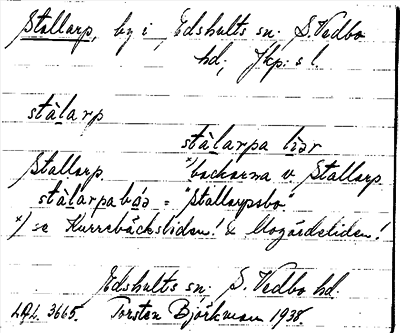 Stallarp, by i Edshults sn; S. Vedbo
hd; Jkp: s l.
stàlarp
stàlarpa lìər
Stallarp. x) backarna v. Stallarp.
stàlarpabóə = "Stallarpsbo".
x) se Kurrebäcksliden! & Mogärdsliden!
Edshults sn; S. Vedbo hd.
LAL. 3665. Torsten Björkman 1938